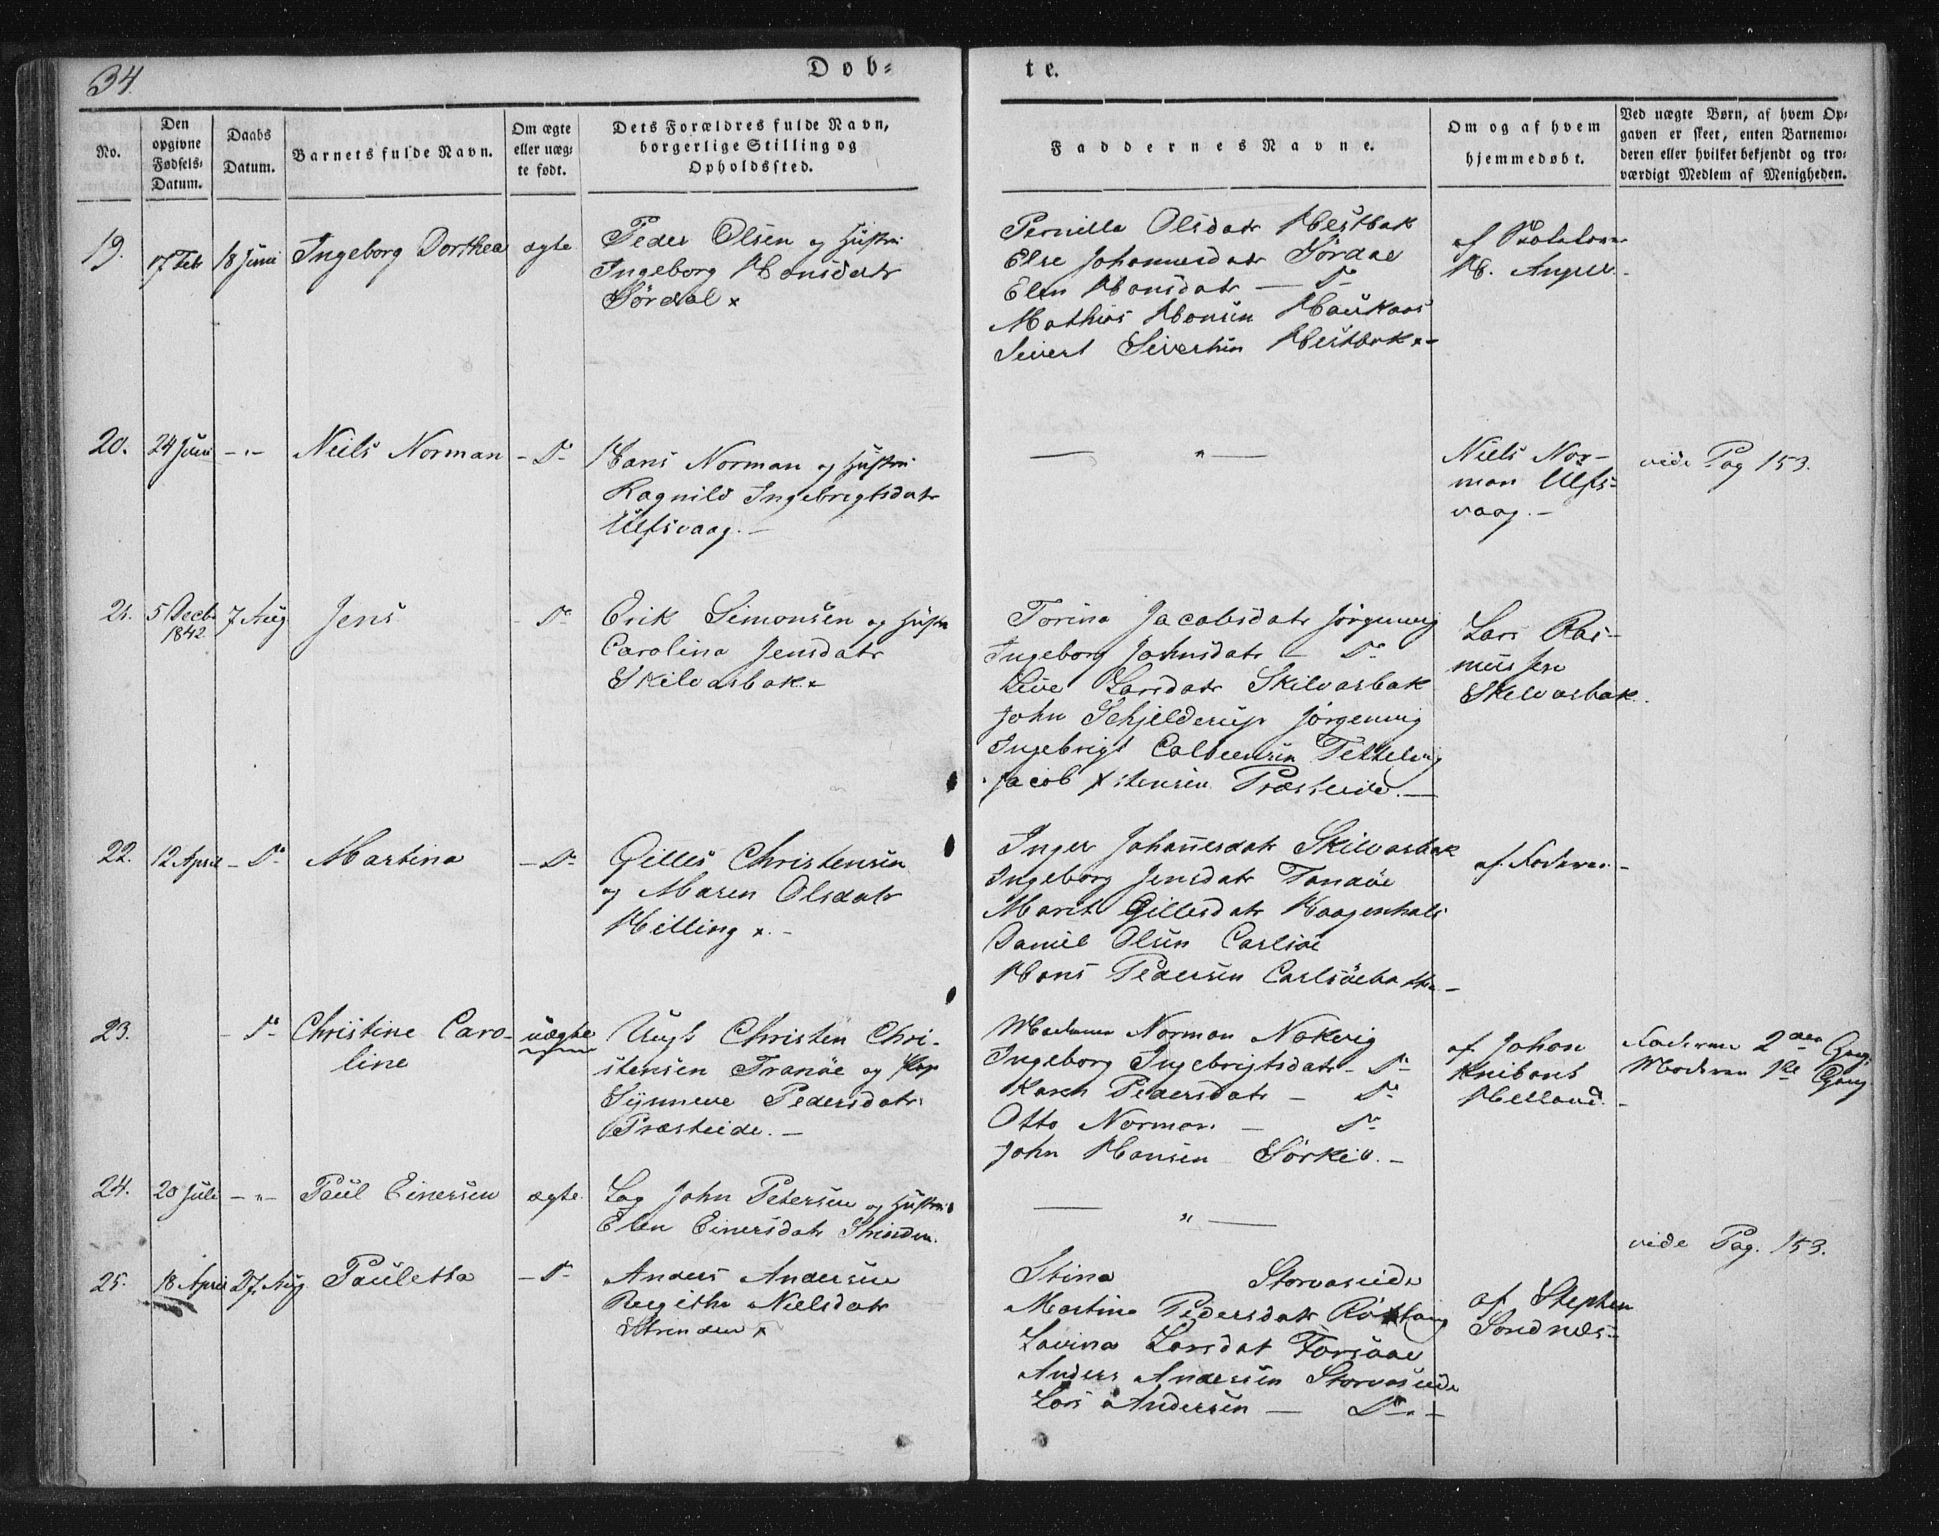 34.
Døb-
te.
No.
Den
opgivne
Fødsels-
Datum.
Daabs
Datum.
Barnets fulde Navn.
Om ægte
eller uæg-
te født.
Dets Forældres fulde Navn,
borgerlige Stilling og
Opholdssted.
Faddernes Navne.
Om og af hvem
hjemmedøbt.
Ved uægte Børn, af hvem Op-
gaven er skeet, enten Barnemo-
deren eller hvilket bekjendt og tro-
værdigt Medlem af Menigheden.
19.
17 Feb
18 Juni
Ingeborg Dorthea
ægte
Peder Olsen og Hustru
Ingeborg Hansdatr
Sördal x
Pernilla Olsdatr Hestbak
Else Johannesdatr Sördal
Elen Hansdatr — Do
Mathias Hansen Haukaas
Sivert Sivertsen Hestbak x-
af
H. Anger.
20.
24 Juni
-"-
Niels Norman
- Do
Hans Norman og Hustru
Ragnild Ingebrigtsdatr
Ulfsvaag. -
— " —
Niels Nor-
man Ulfs-
vaag. -
vide Pag 153.
21.
5 Decbr
1842.
7 Aug
Jens
- Do
Erik Simonsen og Hustru
Carolina Jensdatr
Skilvasbak. x
Torina Jacobsdatr Jörgenvig
Ingeborg Johnsdatr - Do
Live Larsdatr Skilvasbak
John Schjelderup Jörgenvig
Ingebrigt
Jacob Xstensen Præsteide. —
Lars Ras-
mussen
Skilvasbak.
22.
12 April
- Do
Martina
- Do
Gilles Christensen
og Maren Olsdatr
Hilling x. -
Inger Johannesdatr Skilvasbak
Ingeborg Jensdatr Tandöe
Marit Gillesdatr Kaagenhals
Daniel Olsen Carlsöe
Hans Pedersen
af Faderen -
23.
- Do
Christine Caro-
line
uægte
Ungk Christen Chri-
stensen Tranöe og Pige
Synneve Pedersdatr
Præsteide. -
Madame Norman Nakvig
Ingeborg Ingebrigtsdatr - Do
Karen Pedersdatr - Do
Otto Norman - Do
John Hansen
af Johan
Knibant
Helland. -
Faderen 2den Gang.
Moderen 1te Gang
24.
20 Juli
-"-
Paul Einersen
ægte
John Petersen og Hustru
Elen Einersdatr Strinden.
— " —
vide Pag. 153.
25.
18 April
27. Aug
Pauletta
- Do
Anders Andersen
Regitha Nielsdatr
Strinden x
Stina Storvaseide
Martina Pedersdatr
Lavina Larsdat
Anders Andersen Storvaseide
Lars Andersen — Do. -
af Stephen
Sandnes-